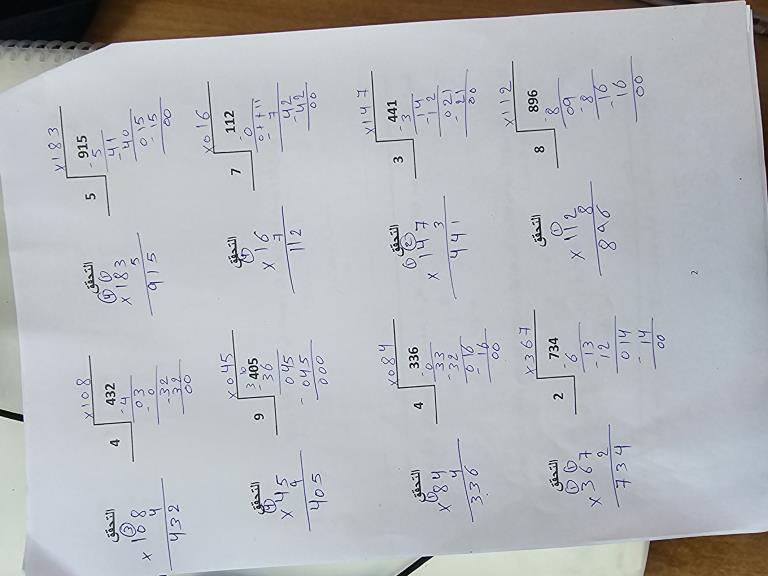 التحقق
③
× 108
4
432
×108
4 432
- 4
03
- 0
- 32
32
00
التحقق
④ ①
× 183
5
915
×183
5 915
- 5
41
- 40
015
- 15
00
التحقق
④
× 45
9
405
×045
9 405
36
045
- 045
000
التحقق
④
× 16
7
112
×016
7 112
- 0
- 7
42
- 42
00
التحقق
①
× 84
4
336
×084
4 336
0
33
- 32
016
- 16
00
التحقق
① ②
× 147
3
441
×147
3 441
- 3
14
- 12
021
- 21
00
التحقق
① ①
× 367
2
734
×367
2 734
- 6
13
- 12
014
- 14
00
التحقق
①
× 112
8
896
×112
8 896
- 8
09
- 8
16
- 16
00
2